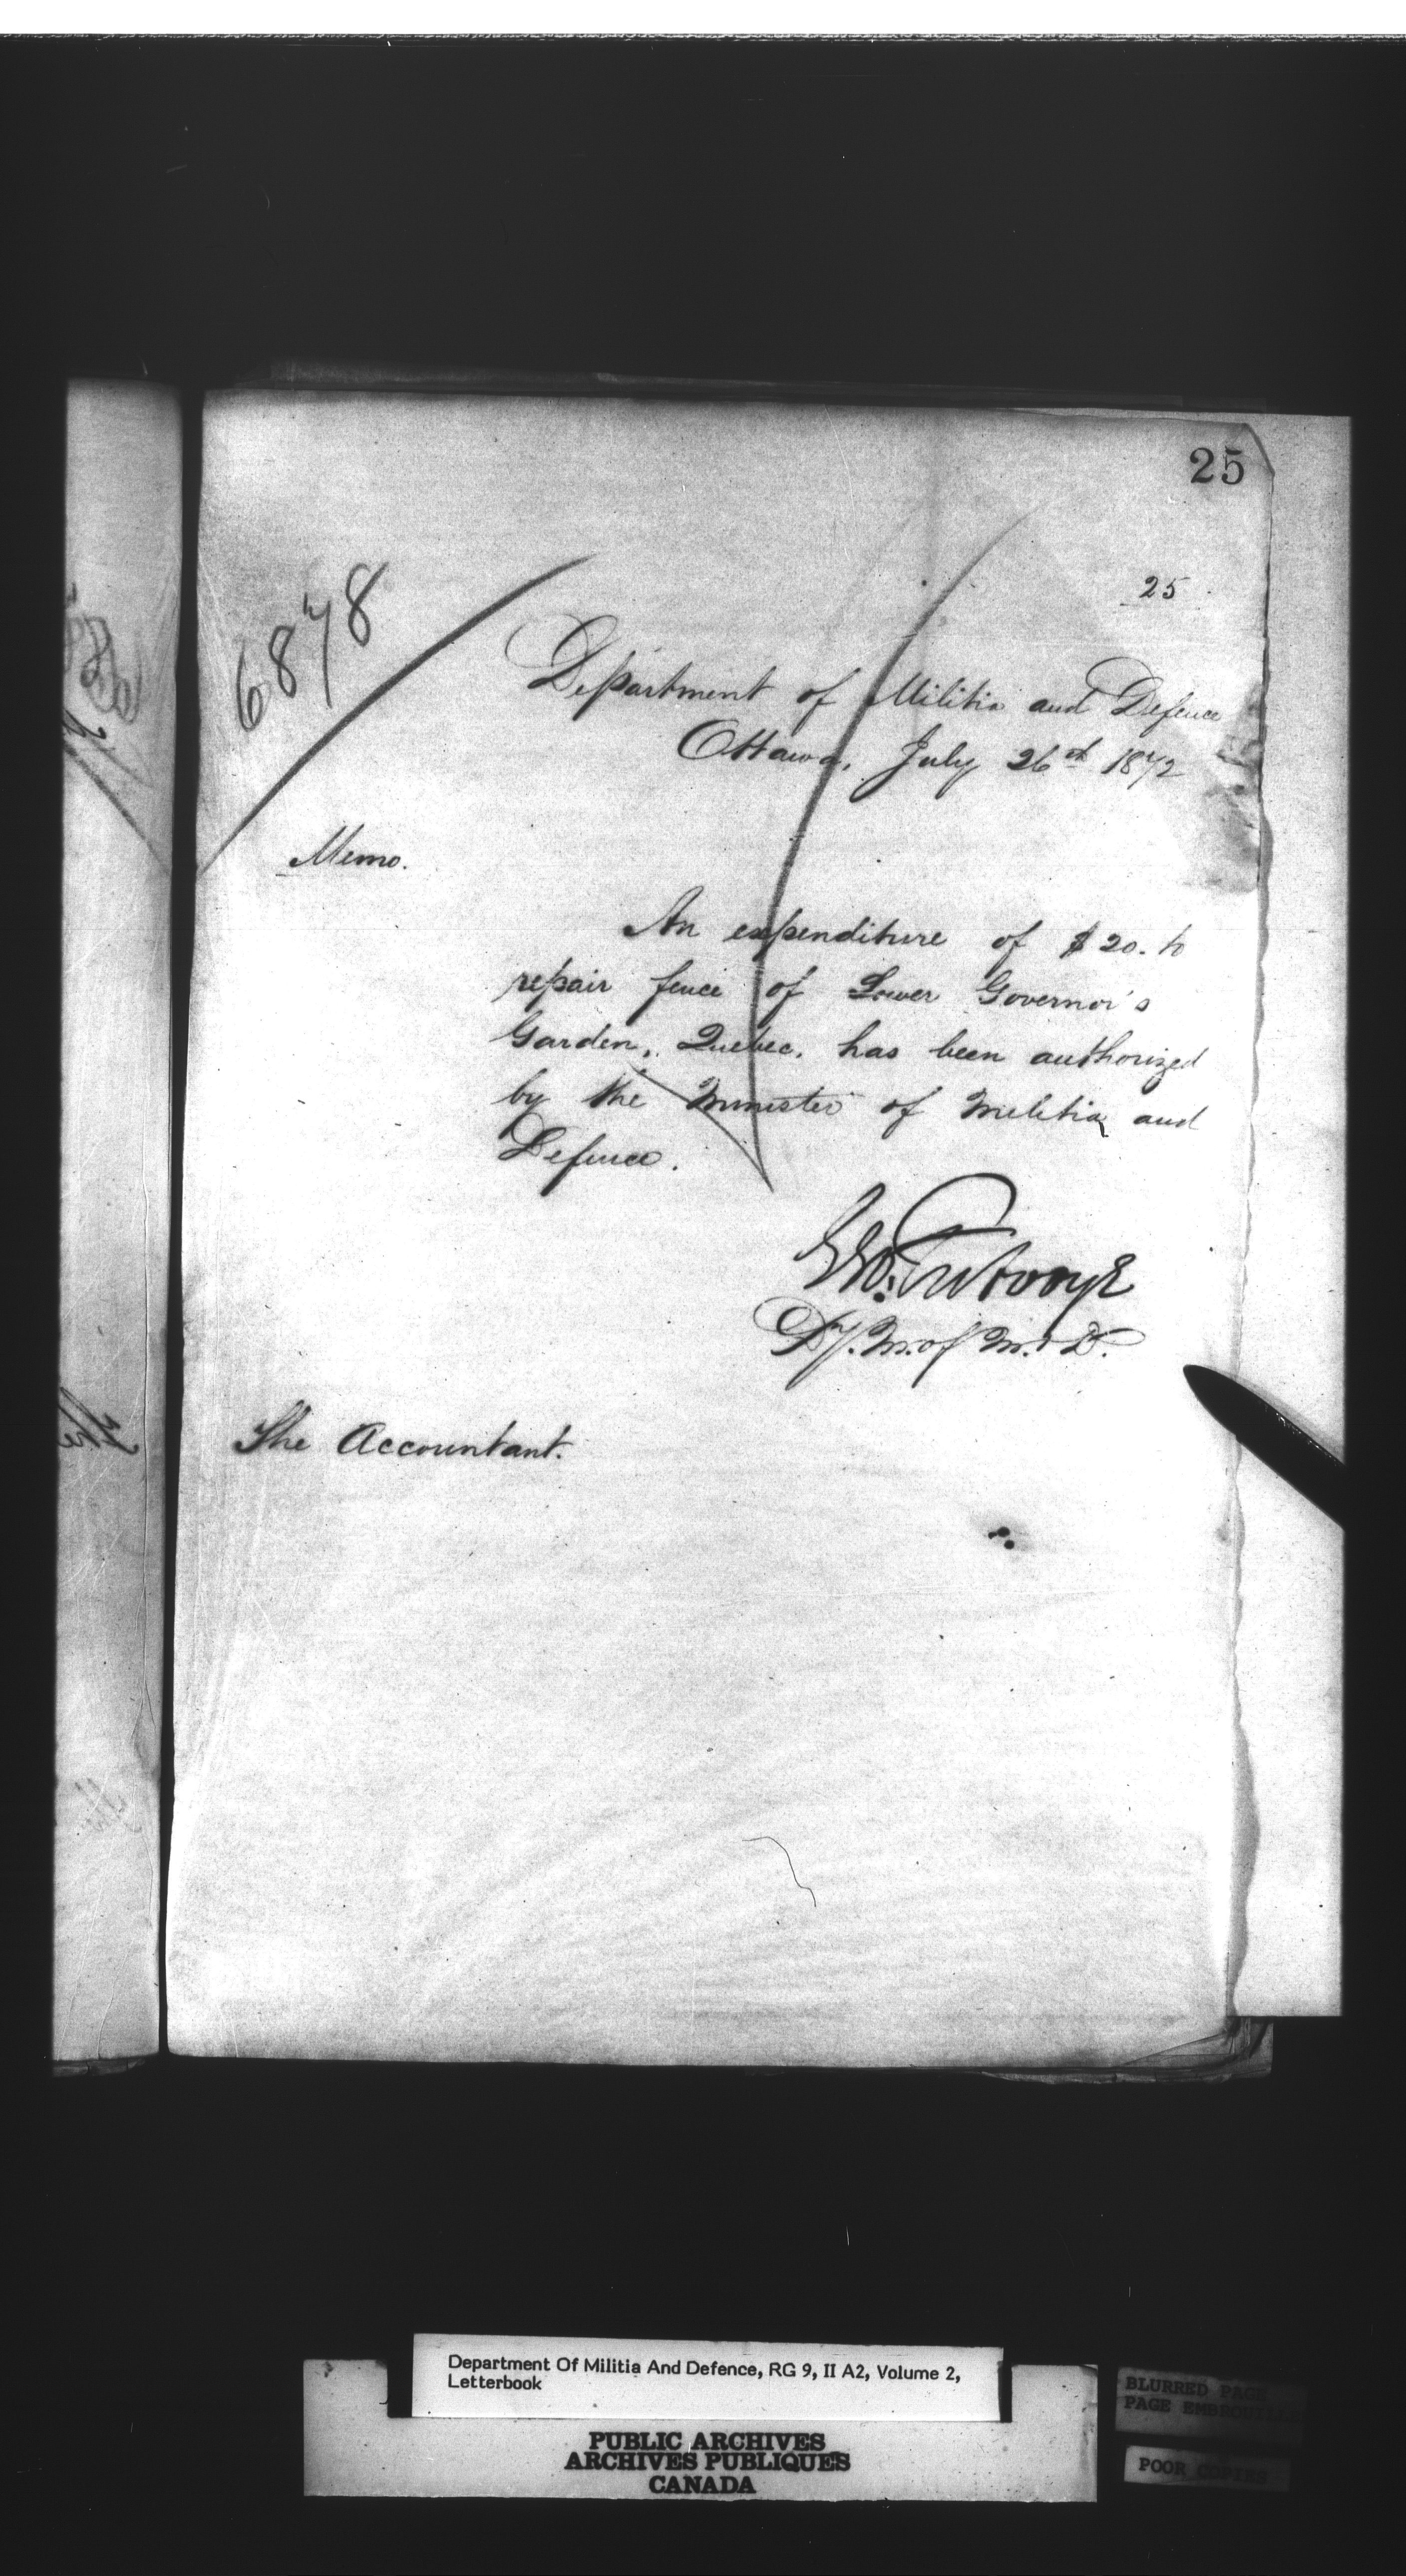 25
25
6878
Department of Militia and Defence
Ottawa, July 26th 1872
Memo.
An expenditure of $20. to
repair fence of Lower Governor's
Garden, Quebec, has been authorized
by the Minister of Militia and
Defence.
Geo. Futvoye
Dy. M. of M. & D.
The Accountant.
Department Of Militia And Defence, RG 9, II A2, Volume 2,
Letterbook
PUBLIC ARCHIVES
ARCHIVES PUBLIQUES
CANADA
BLURRED PAGE
PAGE EMBROUILLEE
POOR COPIES